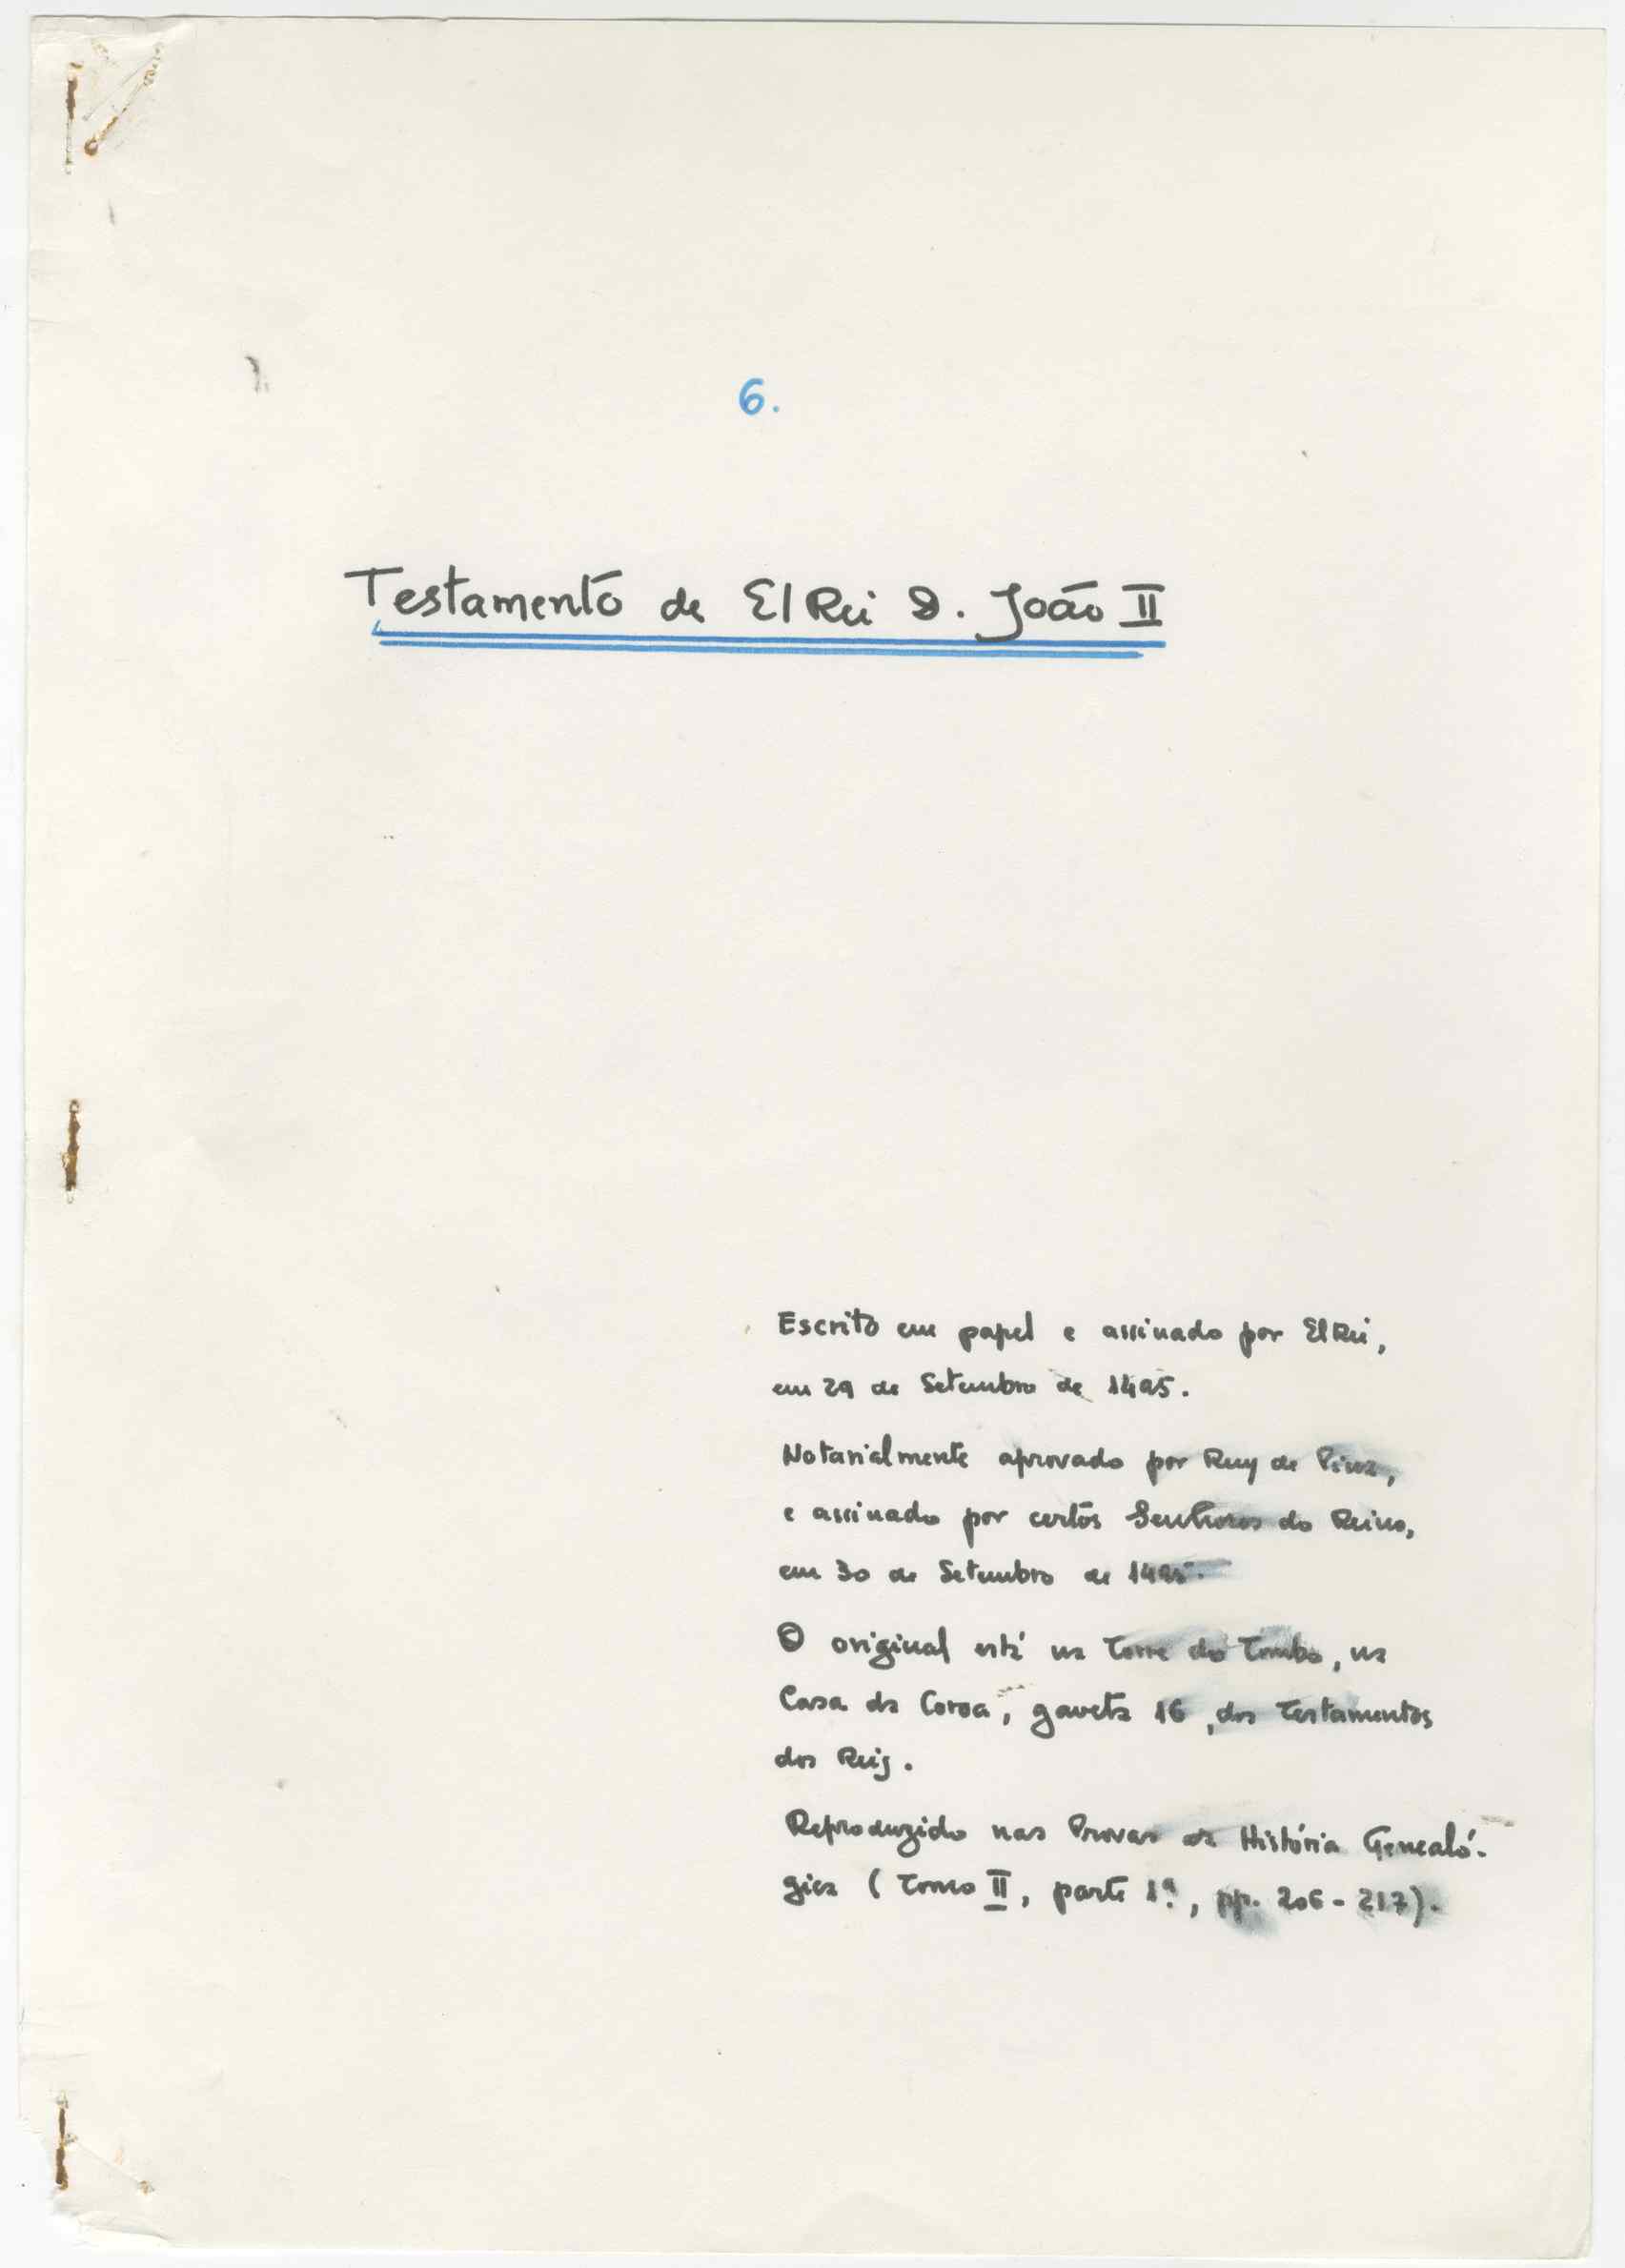 6.
Testamento de El Rei D. João II
Escrito em papel e assinado por El Rei,
em 29 de Setembro de 1495.
Notarialmente aprovado por Ruy de Pina,
e assinado por certos Senhores do Reino,
em 30 de Setembro de 1495.
O original está na Torre do Tombo, na
Casa da Coroa, gaveta 16, dos Testamentos
dos Reis.
Reproduzido nas Provas da História Genealó-
gica (Tomo II, parte 1ª, pp. 206-217).